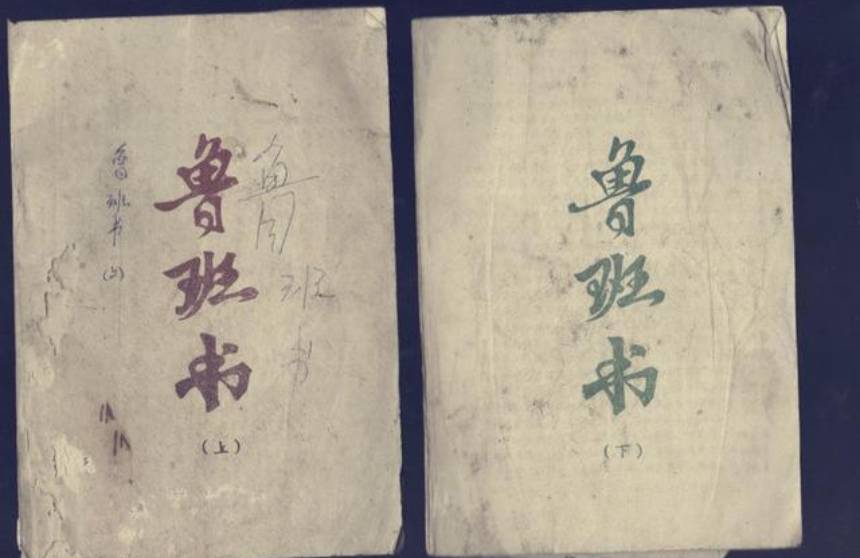 鲁班书
(上)
鲁班书
(上)
鲁班书
鲁班书
(下)